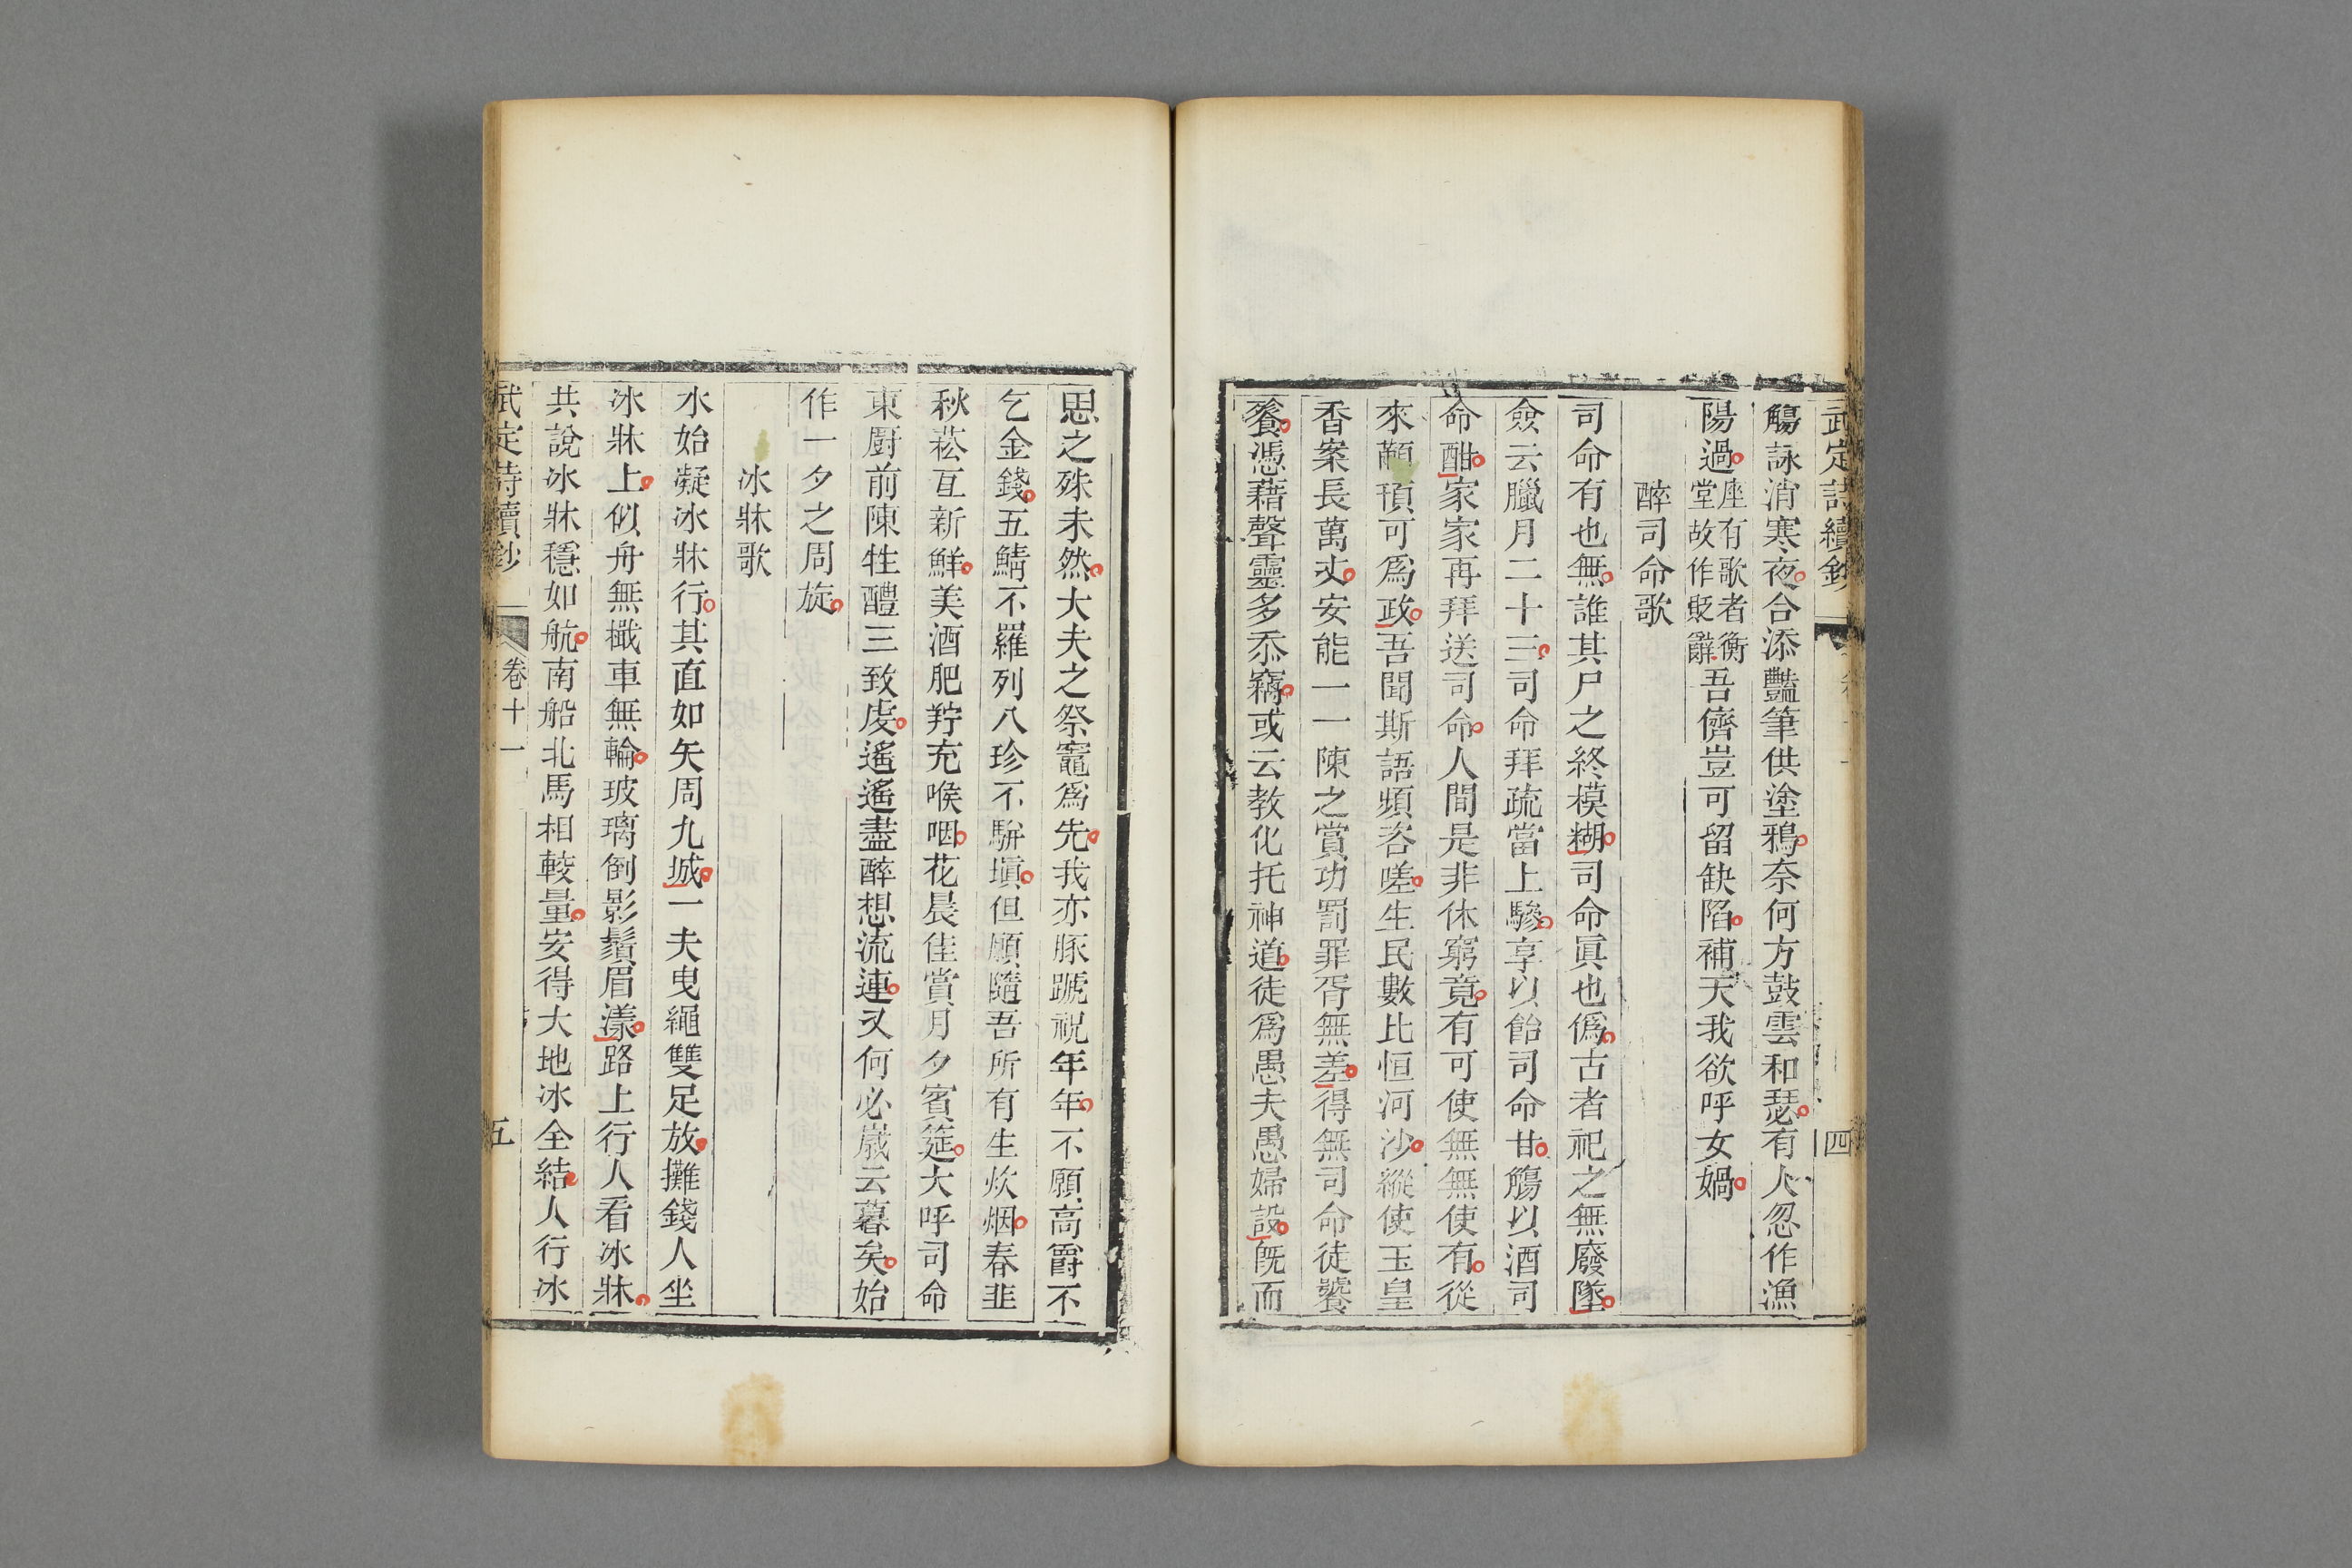 武定詩續鈔 四
觴詠消寒夜合添豔筆供塗鴉奈何方鼓雲和瑟有人忽作漁
陽過座有歌者衡堂故作貶辭吾儕豈可留缺陷補天我欲呼女媧
醉司命歌
司命有也無誰其尸之終模糊司命眞也僞古者祀之無廢墜
僉云臘月二十三司命拜疏當上驂享以飴司命甘觴以酒司
命酣家家再拜送司命人間是非休窮竟有可使無無使有從
來顢頇可爲政吾聞斯語頻咨嗟生民數比恒河沙縱使玉皇
香案長萬丈安能一一陳之賞功罰罪胥無差得無司命徒饕
餮憑藉聲靈多忝竊或云教化托神道徒爲愚夫愚婦設旣而
思之殊未然大夫之祭竈爲先我亦豚蹏祝年年不願高爵不
乞金錢五鯖不羅列八珍不駢塡但願隨吾所有生炊烟春韭
秋菘亙新鮮美酒肥羜充喉咽花晨佳賞月夕賓筵大呼司命
東厨前陳牲醴三致虔遙遙盡醉想流連又何必嵗云暮矣始
作一夕之周旋
冰牀歌
水始凝冰牀行其直如矢周九城一夫曳繩雙足放攤錢人坐
冰牀上似舟無檝車無輪玻璃倒影鬚眉漾路上行人看冰牀
共說冰牀穩如航南船北馬相較量安得大地冰全結人行冰
武定詩續鈔 卷十一 五